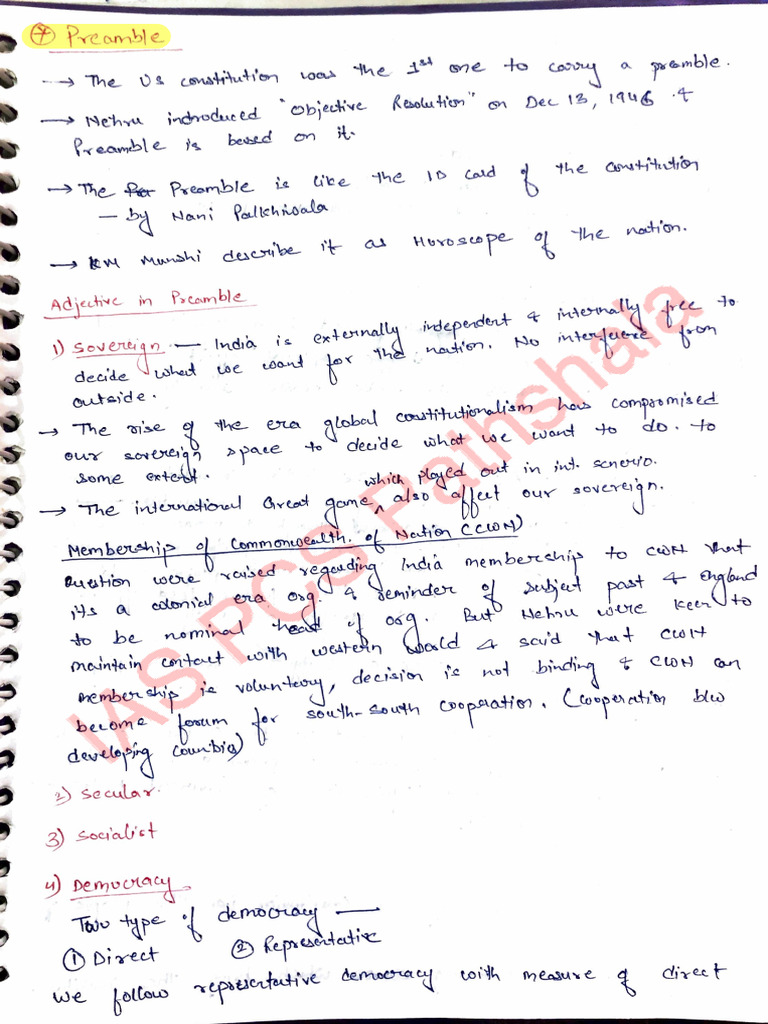 ⑦ Preamble
→ The US constitution was the 1st one to carry a preamble.
→ Nehru introduced "Objective Resolution" on Dec 13, 1946 &
Preamble is based on it.
→ The Preamble is like the ID card of the constitution
— by Nani Palkhiwala
→ KM Munshi describe it as Horoscope of the nation.
Adjective in Preamble
1) Sovereign — India is externally independent & internally free to
decide what we want for the nation. No interfuere from
outside.
→ The rise of the era global constitutionalism has compromised
our sovereign space to decide what we want to do. to
some extent.
→ The international Great game ^ which played out in int. scenerio. also affect our sovereign.
Membership of Commonwealth. of Nation (CWN)
Question were raised regarding India membership to CWN that
its a colonial era org. & reminder of subject past & England
to be nominal head of org. But Nehru were keen to
maintain contact with western world & said that CWN
membership is voluntery, decision is not binding & CWN can
become forum for south-south cooperation. (cooperation b/w
developing countries)
2) Secular.
3) Socialist
4) Democracy.
Two type of democracy —
① Direct ② Representative
We follow representative democracy with measure of direct
IAS PCS Pathshala